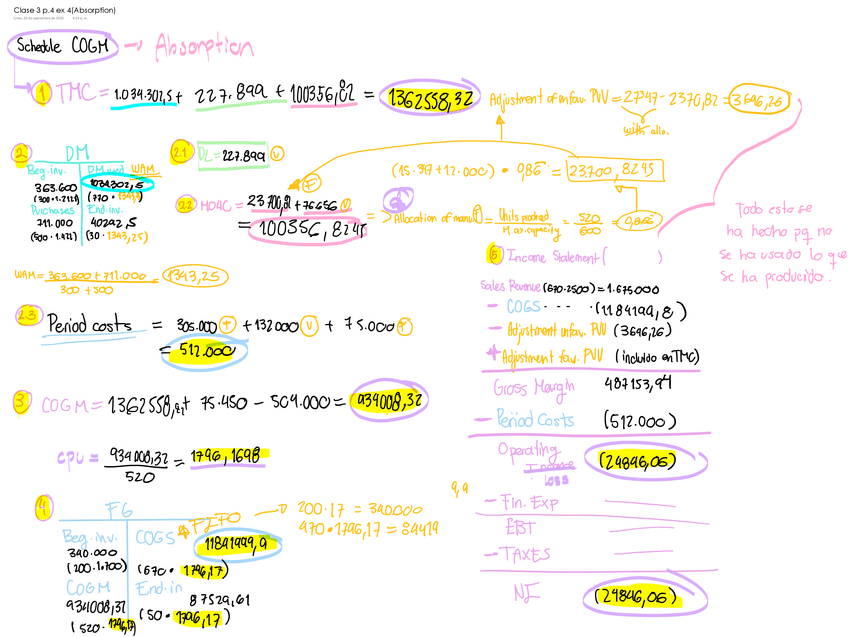 Clase 3 p.4 ex 4(Absorption)
Schedule COGM → Absorption
1 TMC = 1.034.302,5 + 227.899 + 100356,82 = 1362558,32
Adjustment of unfav. PVV = 27347 - 2370,82 = 3646,26
2 DM
Beg. inv.
363.600
Purchases
711.000
WAM
1034302,5
End. inv.
40292,5
(30 · 1343,25)
WAM = 363.600 + 711.000 / 300 + 500 = 1343,25
2.1 DL = 227.899 V
2.2 MOAC = + 76656 V
= 100356,8245
F
· 986 = 23700,8245
=> Allocation of manu = Units produced / Max. capacity = 520 / 600 =
Todo esto se
ha hecho pq no
se ha usado lo que
se ha producido.
2.3 Period costs = 305.000 F + 132000 V + 75.000 F
= 512.000
3 COGM = 1362558,32 + 75.450 - 504.000 = 934008,32
cpu = 934008,32 / 520 = 1796,1698
4 FG
FIFO
200·17 = 340.000
470·1796,17 = 84419
Beg. inv.
340.000
(200·1.700)
COGM
934008,32
(520· 1796,17)
COGS
(670· 1796,17)
End.in
87529,61
(50· 1796,17)
5 Income Statement ( )
Sales Revenue (670·2500) = 1.675.000
- COGS · · · · (1184199,8)
- Adjustment unfav. PVV (3646,26)
+ Adjustment fav. PVV (incluido en TMC)
Gross Margin 487153,94
- Period Costs (512.000)
Operating Income loss (24846,06)
9,9
- Fin. Exp
EBT
- TAXES
NI (24846,06)